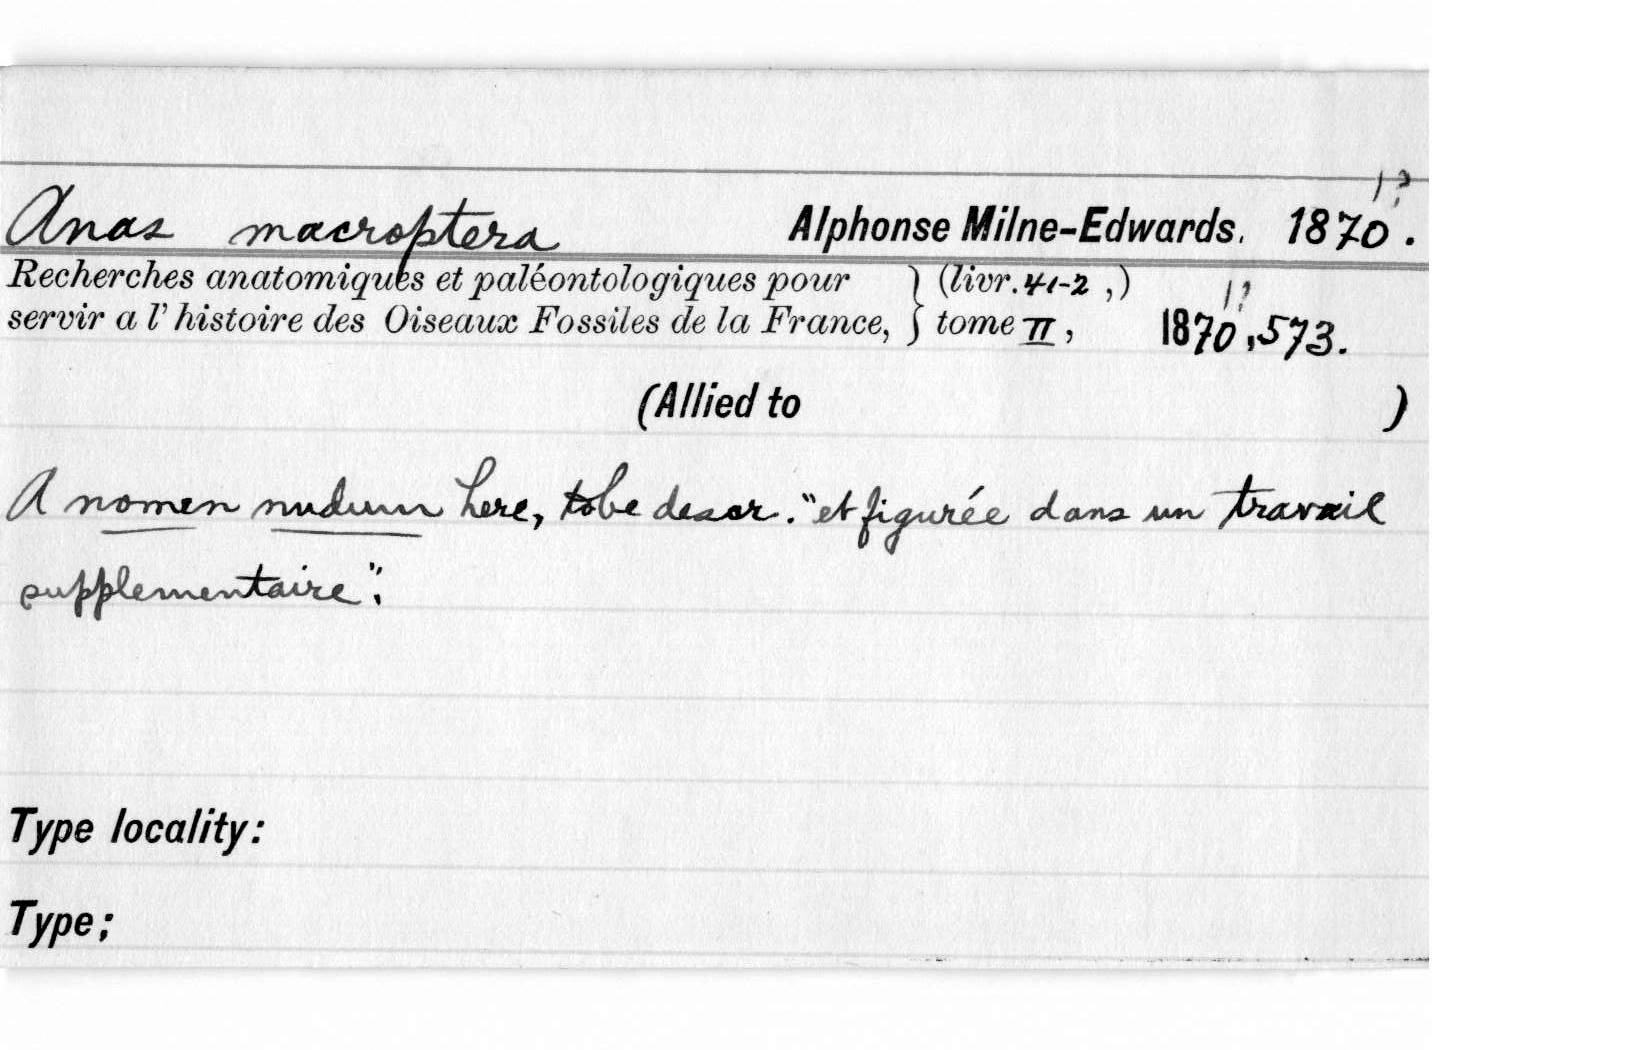 1?
Anas macroptera Alphonse Milne-Edwards. 1870.
Recherches anatomiques et paléontologiques pour } (livr. 41-2 ,) 1?
servir a l'histoire des Oiseaux Fossiles de la France, } tome II, 1870, 573.
(Allied to )
A nomen nudum here, to be descr. "et figurée dans un travail
supplementaire".
Type locality:
Type;